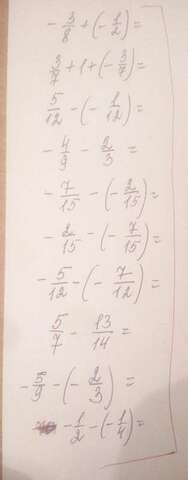 - 3/8 + (- 1/2) =
3/7 + 1 + (- 3/7) =
5/12 - (- 1/12) =
- 4/9 - 2/3 =
- 7/15 - (- 2/15) =
- 2/15 - (- 7/15) =
- 5/12 - (- 7/12) =
5/7 - 13/14 =
- 5/9 - (- 2/3) =
- 1/2 - (- 1/4) =